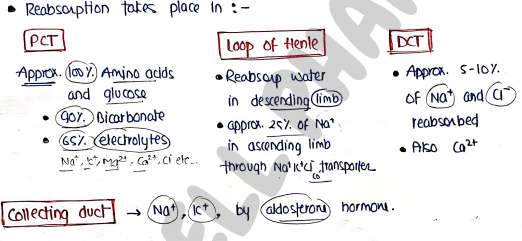 • Reabsorption takes place in :-
PCT
Approx. 100% Amino acids
and glucose
• 90% Bicarbonate
• 65% electrolytes
Na⁺, K⁺, Mg²⁺, Ca²⁺, Cl⁻ etc...
Loop of Henle
• Reabsorp water
in descending limb
• approx. 25% of Na⁺
in ascending limb
through Na⁺K⁺Cl⁻ transporter
co
DCT
• Approx. 5-10%
of Na⁺ and Cl⁻
reabsorbed
• Also Ca²⁺
Collecting duct → Na⁺, K⁺, by aldosterone hormone.